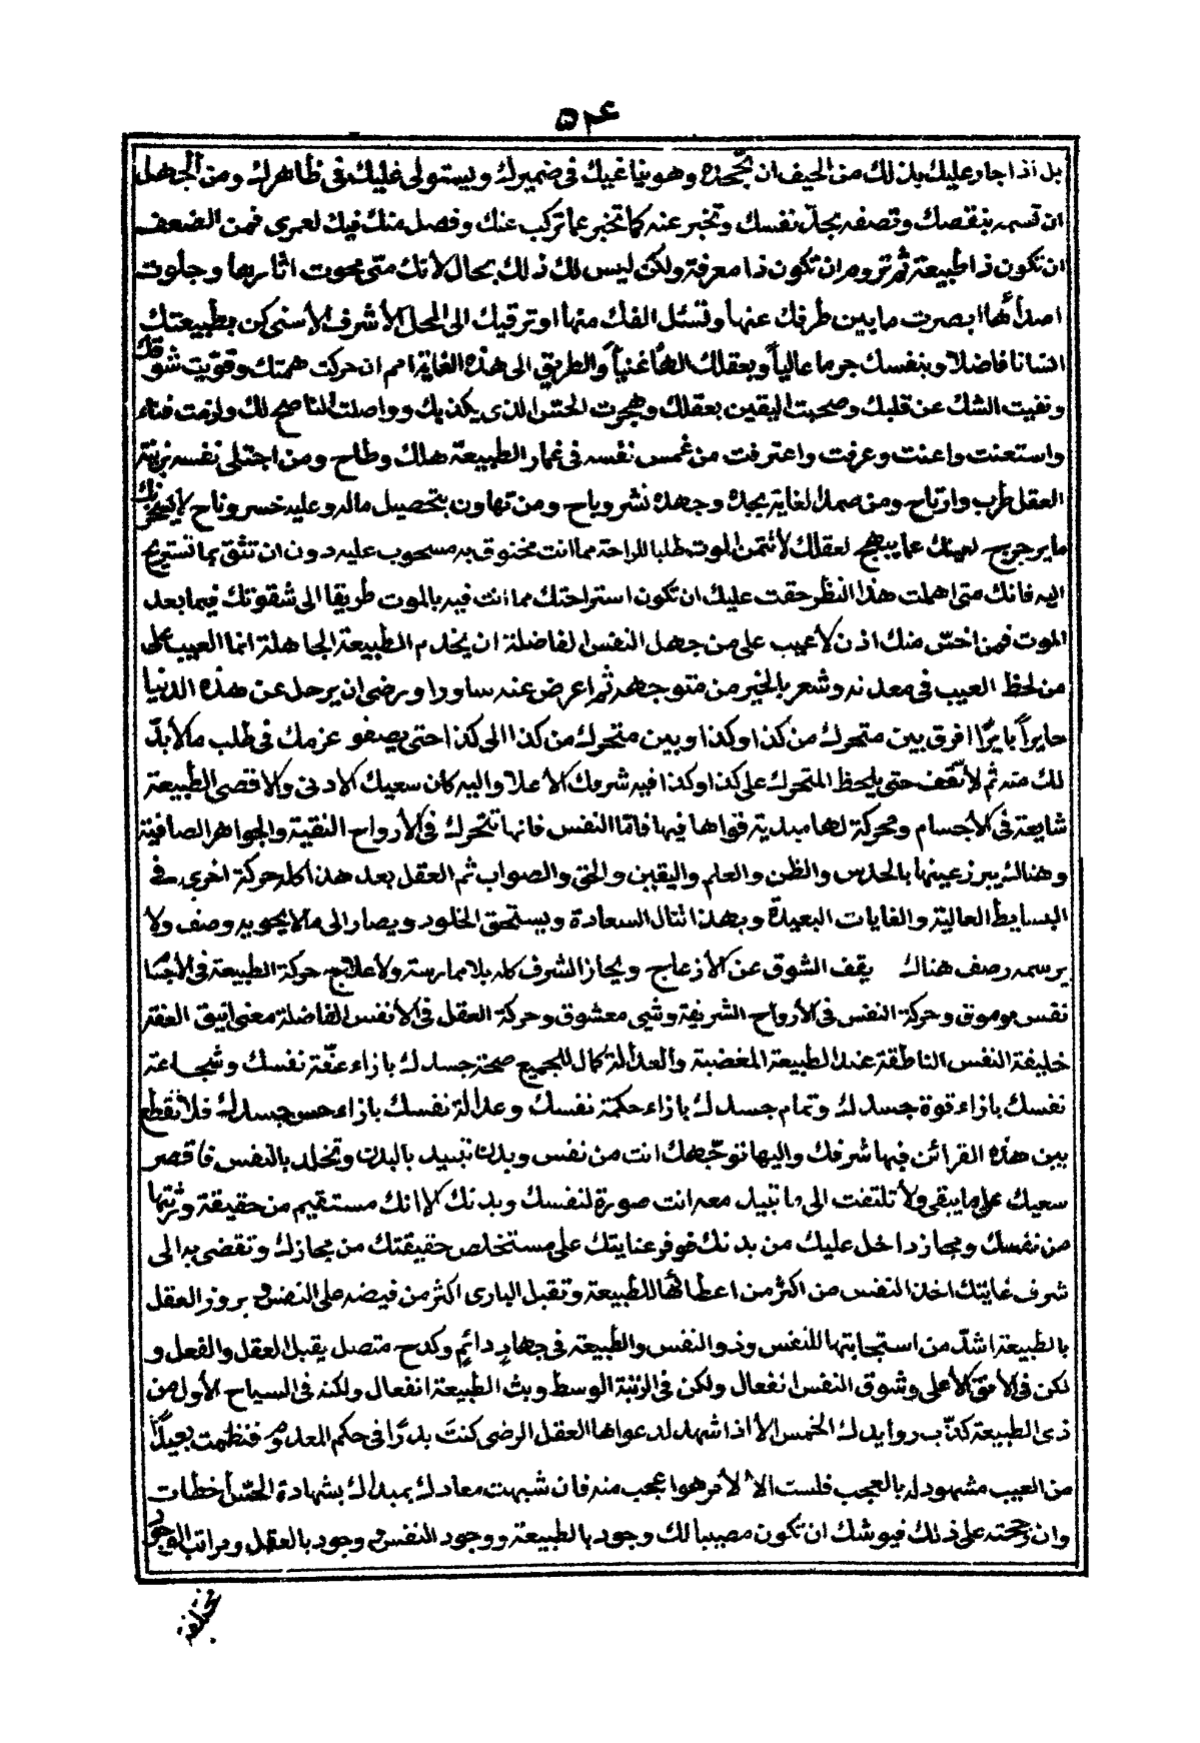 ٥٣٤
بل اذا جار عليك بذلك من الحيف ان تجحده وهو بنا غيبك فى ضميرك ويستولى عليك فى ظاهرك ومن الجهل
ان تسمه بنقصك وتصفه بجلّ نفسك وتخبر عنه كما تخبر عما تركب عنك وفصل منك فيك لعمرى فمن الضعف
ان تكون ذا طبيعة ثم تروم ان تكون ذا معرفة ولكن ليس لك ذلك بحال لأنك متى محوت اثارها وجلوت
اصدأئها ابصرت ما بين طرفك عنها وتسئل الفك منها او ترقيك الى المحل الأشرف الأسنى كن بطبيعتك
انسانا فاضلا وبنفسك جرما عالياً وبعقلك الهاً غنياً والطريق الى هذه الغاية امم ان حركت همتك وقويت شوقك
ونفيت الشك عن قلبك وصحبت اليقين بعقلك وهجرت الحس الذى يكذبك وواصلت الناصح لك ولزمت فناء
واستعنت واعنت وعرفت واعترفت من غمس نفسه فى غمار الطبيعة هلك وطاح ومن اجتلى نفسه بزينة
العقل طرب وارتاح ومن صمد الغاية بجده وجهده نشر وباح ومن تهاون بتحصيل ماله وعليه خسر وناح لا يحزنك
ما يرجرج لعينك عما يبهج لعقلك لا تتمن الموت طلبا للراحة مما انت مخنوق به مسحوب عليه دون ان تثق بما تستريح
اليه فانك متى اهملت هذا النظر حقت عليك ان تكون استراحتك مما انت فيه بالموت طريقا الى شقوتك فيما بعد
الموت فمن اخسّ منك اذن لا عيب على من جهل النفس الفاضلة ان يخدم الطبيعة الجاهلة انما العيب على
من لحظ العيب فى معدنه وشعر بالخير من متوجهه ثم اعرض عنه ساورا ورضى ان يرحل عن هذه الدنيا
حايراً بايرًا افرق بين متحرك من كذا وكذا وبين متحرك من كذا الى كذا حتى يصفو عزمك فى طلب ما لا بدّ
لك منه ثم لا تقف حتى يلحظ المتحرك على كذا وكذا فبه شرفك الأعلا واليه كان سعيك الادنى والاقصى الطبيعة
شايعة فى الأجسام ومحركة لها مبدية قواها فيها فامّا النفس فانها تتحرك فى الأرواح النقية والجواهر الصافية
وهناك يبرز عينها بالحدس والظن والعلم واليقين والحق والصواب ثم العقل بعد هذا كله حركة اخرى فى
البسايط العالية والغايات البعيدة وبهذا تنال السعادة ويستحق الخلود ويصار الى ما لا يحويه وصف ولا
يرسمه رصف هناك يقف الشوق عن الأزعاج ويحاز الشرف كله بلا ممارسة ولا علاج حركة الطبيعة فى الأجسا
نقس موموق وحركة النفس فى الأرواح الشريفة وشى معشوق وحركة العقل فى الأنفس الفاضلة معنى انيق العفة
خليفة النفس الناطقة عند الطبيعة المغضبة والعدالة كمال للجميع صحة جسدك بازاء عفّة نفسك وشجاعة
نفسك بازاء قوة جسدك وتمام جسدك بازاء حكمة نفسك وعدالة نفسك بازاء حسن جسدك فلا تقطع
بين هذه القرائن فبها شرفك واليها توجّهك انت من نفس وبدن تبيد بالبدن وتخلد بالنفس فاقصر
سعيك على ما يبقى ولا تلتفت الى ما تبيد معه انت صورة لنفسك وبدنك كلا انك مستقيم من حقيقة وثرتها
من نفسك ومجاز داخل عليك من بدنك فوفر عنايتك على مستخلص حقيقتك من مجازك وتقضى به الى
شرف غايتك اخذ النفس من اكثر من اعطائها للطبيعة وتقبل البارى اكثر من فيضه على النفس وبروز العقل
بالطبيعة اشدّ من استجابتها للنفس وذو النفس والطبيعة فى جهادٍ دائمٍ وكدح متصل يقبل العقل والفعل و
لكن فى الأفق الأعلى وشوق النفس انفعال ولكن فى الرتبة الوسط وبث الطبيعة انفعال ولكنه فى السياح الأول من
ذى الطبيعة كذّب روايدك الخمس الا اذا شهد لدعواها العقل الرضى كنتَ بدرًا فى حكم المعدوم فنظمت بعيدًا
من العيب مشهود له بالعجب فلست الا لأمر هو اعجب منه فان شبهت معادك بمبداك بشهادة الحس اخطات
وان رجحته على ذلك فيوشك ان تكون مصيبا لك وجود بالطبيعة ووجود النفس ووجود بالعقل ومراتب الوجود
مختلفة